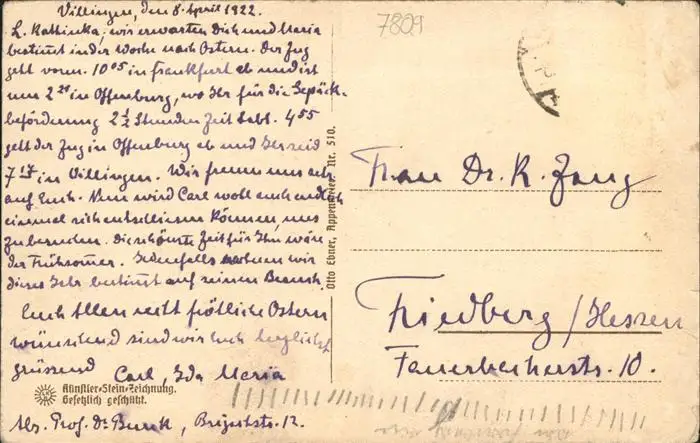 Villingen, den 8. April 1922.
L. Kathinka, wir erwarten Dich und Maria
bestimt in der Woche nach Ostern. Der Zug
geht vorm. 10 05 in Frankfurt ab und ist
um 2 21 in Offenburg, wo Ihr für die Gepäck-
beförderung 2 1/2 Stunden Zeit habt. 4 55
geht der Zug in Offenburg ab und Ihr seid
7 17 in Villingen. Wir freuen uns sehr
auf Euch. Nun wird Carl wohl auch endlich
einmal sich entschliessen können, uns
zu besuchen. Die schönste Zeit für Ihn wäre
der Frühsomer. Jedenfalls rechnen wir
dieses Jahr bestimt auf seinen Besuch.
Euch Allen recht fröhliche Ostern
wünschend sind wir Euch herzlichst
grüssend
Carl, Ida Maria
Künstler-Stein-Zeichnung.
Gesetzlich geschützt.
Abs. Prof. Dr. Bunk, Brigachstr. 12.
Otto Ebner, Appenweier. Nr. 510.
7809
Frau Dr. K. Zang
Friedberg / Hessen
Fauerbacherstr. 10.